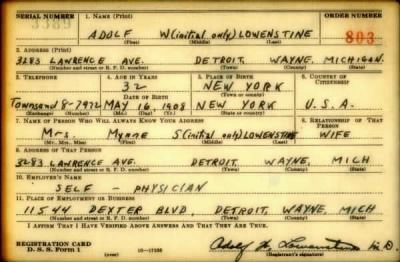 SERIAL NUMBER 1. NAME (Print) ORDER NUMBER
3389 ADOLF W(initial only) LOWENSTINE 803
(First) (Middle) (Last)
2. ADDRESS (Print)
3283 LAWRENCE AVE. DETROIT, WAYNE, MICHIGAN.
(Number and street or R. F. D. number) (Town) (County) (State)
3. TELEPHONE 4. AGE IN YEARS 5. PLACE OF BIRTH 6. COUNTRY OF CITIZENSHIP
32 NEW YORK
DATE OF BIRTH (Town or county)
Townsend 8-7972 MAY 16, 1908 NEW YORK U.S.A.
(Exchange) (Number) (Mo.) (Day) (Yr.) (State or country)
7. NAME OF PERSON WHO WILL ALWAYS KNOW YOUR ADDRESS 8. RELATIONSHIP OF THAT PERSON
Mrs. S(initial only) LOWENSTINE WIFE
(Mr., Mrs., Miss) (First) (Middle) (Last)
9. ADDRESS OF THAT PERSON
3283 LAWRENCE AVE. DETROIT, WAYNE, MICH
(Number and street or R. F. D. number) (Town) (County) (State)
10. EMPLOYER'S NAME
SELF - PHYSICIAN
11. PLACE OF EMPLOYMENT OR BUSINESS
11544 DEXTER BLVD, DETROIT, WAYNE, MICH
(Number and street or R. F. D. number) (Town) (County) (State)
I AFFIRM THAT I HAVE VERIFIED ABOVE ANSWERS AND THAT THEY ARE TRUE.
REGISTRATION CARD
D. S. S. Form 1 (over) Adolf W. Lowenstine M.D.
(Registrant's signature)